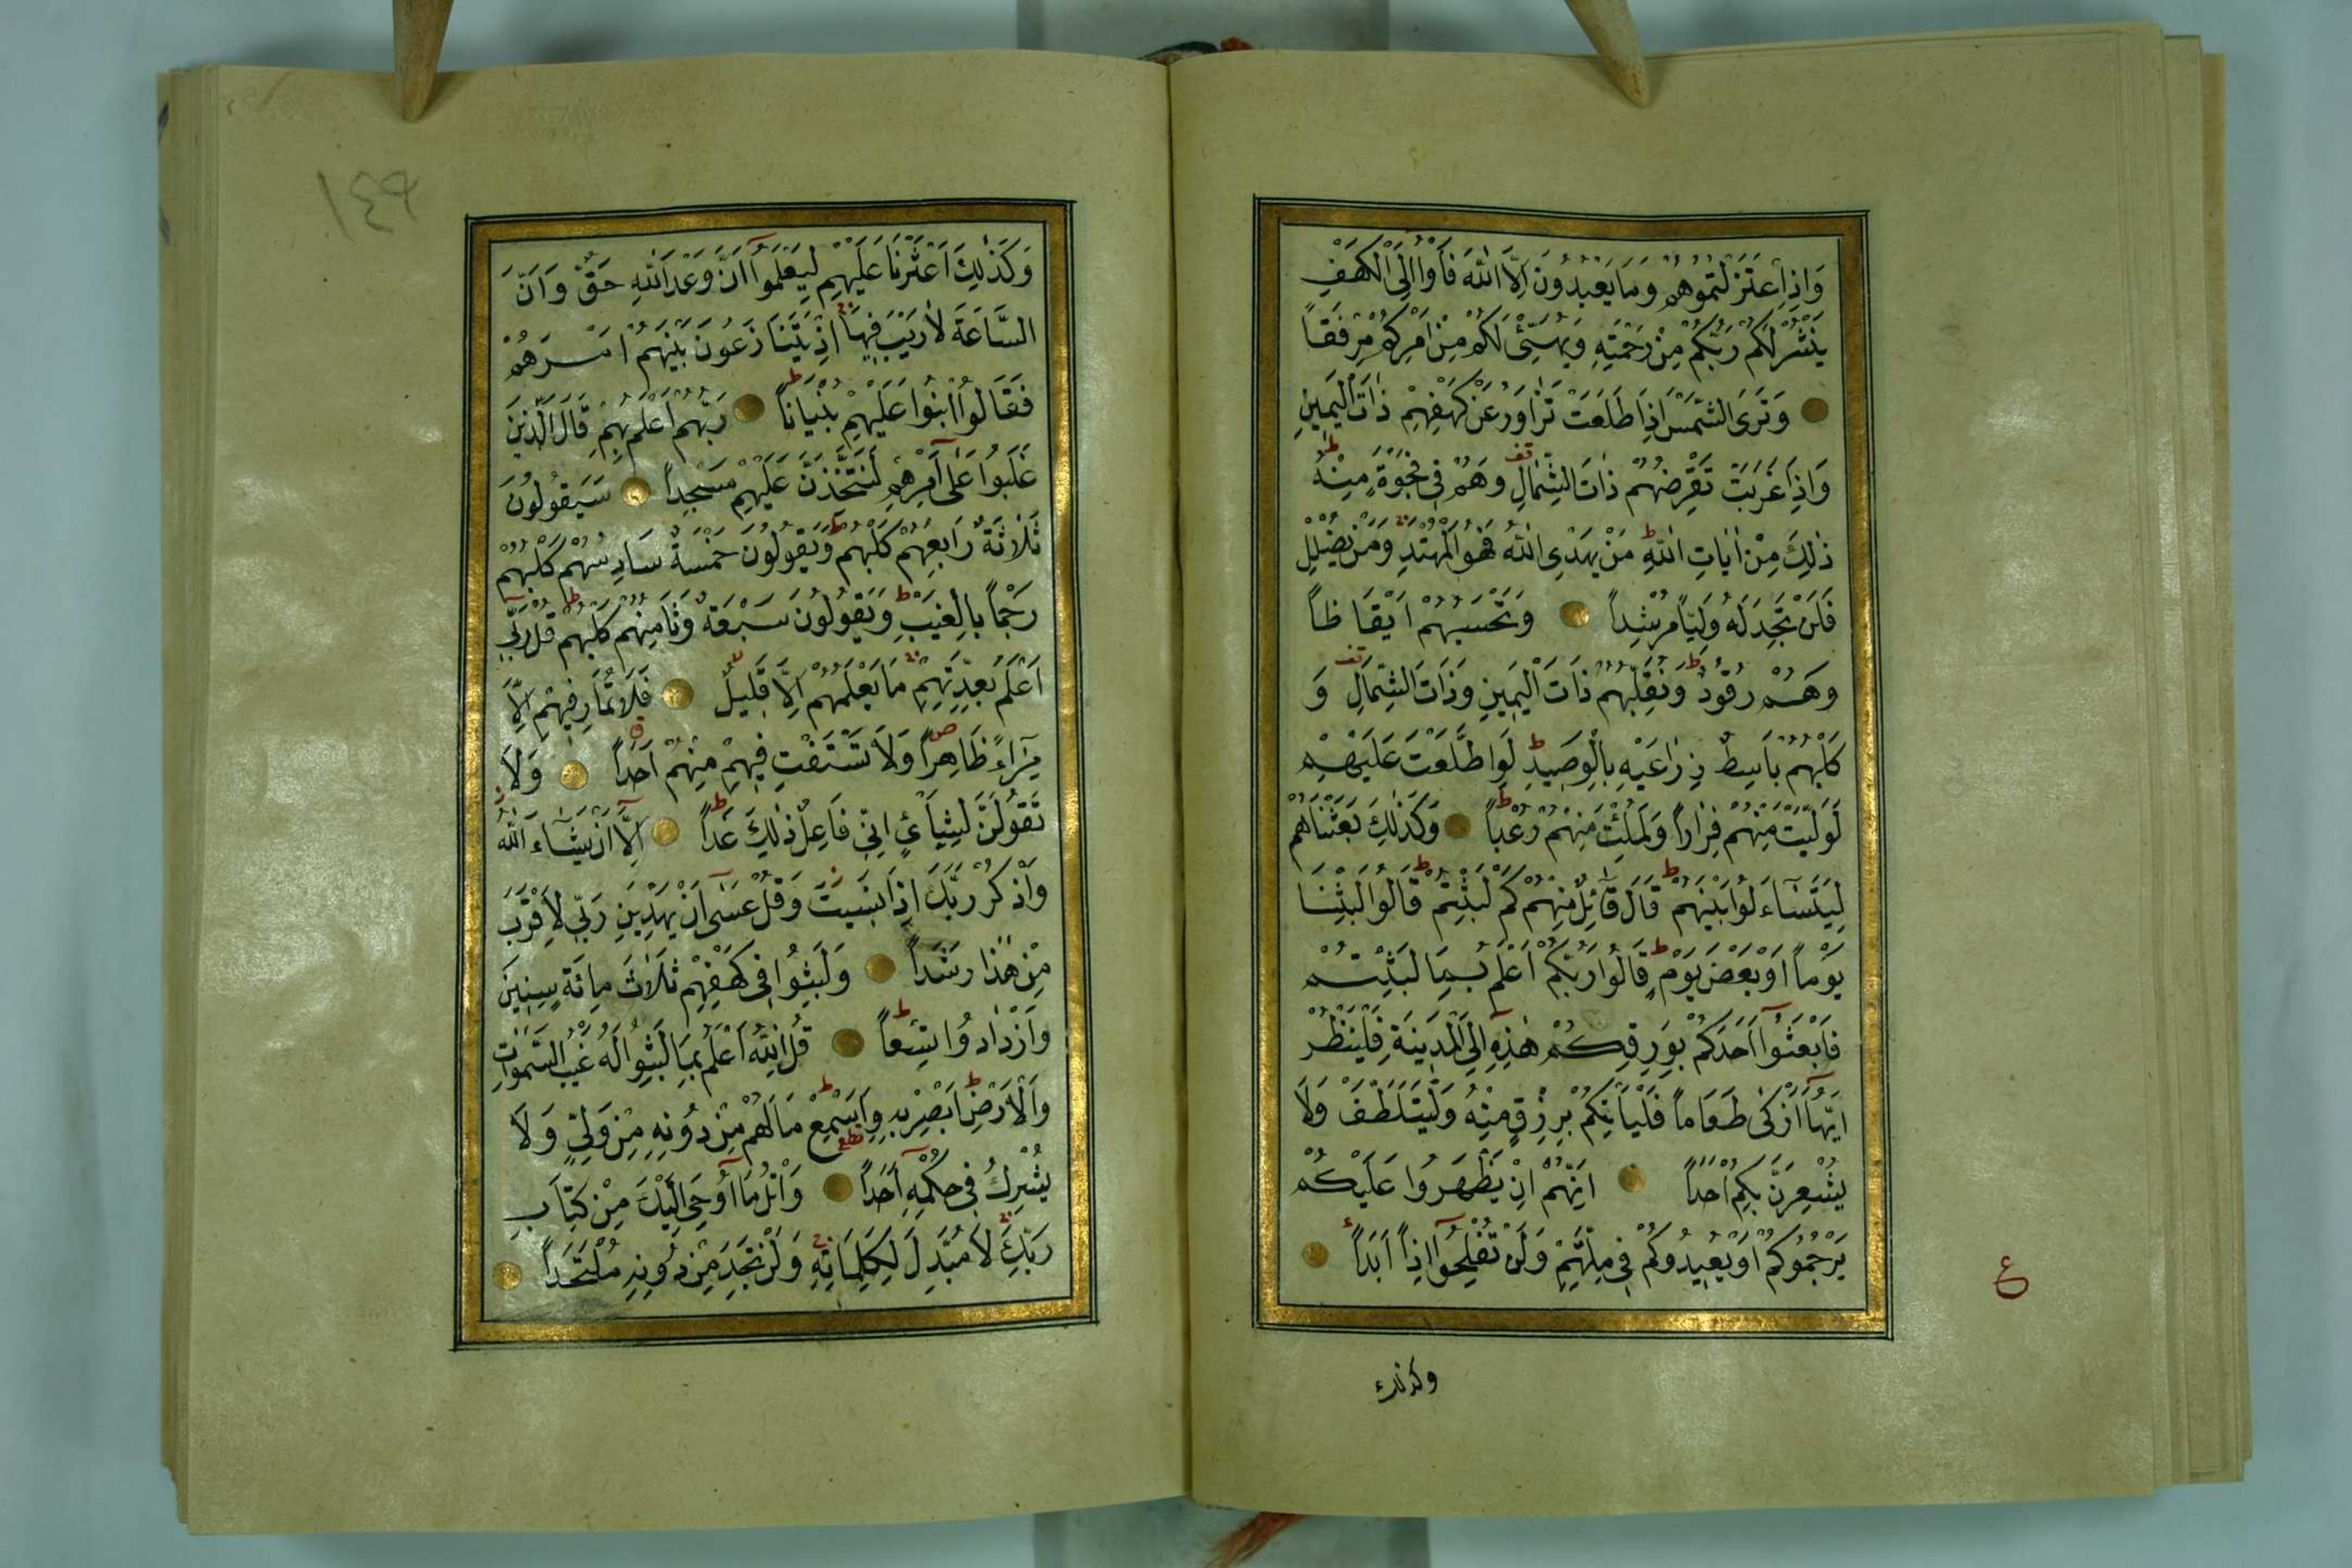 وَاِذِ اعْتَزَلْتُمُوهُمْ وَمَا يَعْبُدُونَ اِلَّا اللّٰهَ فَأْوُا اِلَى الْكَهْفِ
يَنْشُرْ لَكُمْ رَبُّكُمْ مِنْ رَحْمَتِهِ وَيُهَيِّئْ لَكُمْ مِنْ اَمْرِكُمْ مِرْفَقاً
وَتَرَى الشَّمْسَ اِذَا طَلَعَتْ تَزَاوَرُ عَنْ كَهْفِهِمْ ذَاتَ الْيَمِينِ
وَاِذَا غَرَبَتْ تَقْرِضُهُمْ ذَاتَ الشِّمَالِ وَهُمْ فِى فَجْوَةٍ مِنْهُ
ذٰلِكَ مِنْ اٰيَاتِ اللّٰهِ مَنْ يَهْدِى اللّٰهُ فَهُوَ الْمُهْتَدِ وَمَنْ يُضْلِلْ
فَلَنْ تَجِدَ لَهُ وَلِيّاً مُرْشِداً وَتَحْسَبُهُمْ اَيْقَاظاً
وَهُمْ رُقُودٌ وَنُقَلِّبُهُمْ ذَاتَ الْيَمِينِ وَذَاتَ الشِّمَالِ وَ
كَلْبُهُمْ بَاسِطٌ ذِرَاعَيْهِ بِالْوَصِيدِ لَوِ اطَّلَعْتَ عَلَيْهِمْ
لَوَلَّيْتَ مِنْهُمْ فِرَاراً وَلَمُلِئْتَ مِنْهُمْ رُعْباً وَكَذٰلِكَ بَعَثْنَاهُمْ
لِيَتَسَآءَلُوا بَيْنَهُمْ قَالَ قَآئِلٌ مِنْهُمْ كَمْ لَبِثْتُمْ قَالُوا لَبِثْنَا
يَوْماً اَوْ بَعْضَ يَوْمٍ قَالُوا رَبُّكُمْ اَعْلَمُ بِمَا لَبِثْتُمْ
فَابْعَثُوٓا اَحَدَكُمْ بِوَرِقِكُمْ هٰذِهِ اِلَى الْمَدِينَةِ فَلْيَنْظُرْ
اَيُّهَآ اَزْكٰى طَعَاماً فَلْيَأْتِكُمْ بِرِزْقٍ مِنْهُ وَلْيَتَلَطَّفْ وَلَا
يُشْعِرَنَّ بِكُمْ اَحَداً اِنَّهُمْ اِنْ يَظْهَرُوا عَلَيْكُمْ
يَرْجُمُوكُمْ اَوْ يُعِيدُوكُمْ فِى مِلَّتِهِمْ وَلَنْ تُفْلِحُوٓا اِذاً اَبَداً
ع
وكذلك
١٤٩
وَكَذٰلِكَ اَعْثَرْنَا عَلَيْهِمْ لِيَعْلَمُوٓا اَنَّ وَعْدَ اللّٰهِ حَقٌّ وَاَنَّ
السَّاعَةَ لَا رَيْبَ فِيهَا اِذْ يَتَنَازَعُونَ بَيْنَهُمْ اَمْرَهُمْ
فَقَالُوا ابْنُوا عَلَيْهِمْ بُنْيَاناً رَبُّهُمْ اَعْلَمُ بِهِمْ قَالَ الَّذِينَ
غَلَبُوا عَلٰٓى اَمْرِهِمْ لَنَتَّخِذَنَّ عَلَيْهِمْ مَسْجِداً سَيَقُولُونَ
ثَلَاثَةٌ رَابِعُهُمْ كَلْبُهُمْ وَيَقُولُونَ خَمْسَةٌ سَادِسُهُمْ كَلْبُهُمْ
رَجْماً بِالْغَيْبِ وَيَقُولُونَ سَبْعَةٌ وَثَامِنُهُمْ كَلْبُهُمْ قُلْ رَبِّى
اَعْلَمُ بِعِدَّتِهِمْ مَا يَعْلَمُهُمْ اِلَّا قَلِيلٌ فَلَا تُمَارِ فِيهِمْ اِلَّا
مِرَآءً ظَاهِراً وَلَا تَسْتَفْتِ فِيهِمْ مِنْهُمْ اَحَداً وَلَا
تَقُولَنَّ لِشَيْءٍ اِنِّى فَاعِلٌ ذٰلِكَ غَداً اِلَّٓا اَنْ يَشَآءَ اللّٰهُ
وَاذْكُرْ رَبَّكَ اِذَا نَسِيتَ وَقُلْ عَسٰٓى اَنْ يَهْدِيَنِ رَبِّى لِاَقْرَبَ
مِنْ هٰذَا رَشَداً وَلَبِثُوا فِى كَهْفِهِمْ ثَلَاثَ مِائَةٍ سِنِينَ
وَازْدَادُوا تِسْعاً قُلِ اللّٰهُ اَعْلَمُ بِمَا لَبِثُوا لَهُ غَيْبُ السَّمٰوَاتِ
وَالْاَرْضِ اَبْصِرْ بِهِ وَاَسْمِعْ مَا لَهُمْ مِنْ دُونِهِ مِنْ وَلِيٍّ وَلَا
يُشْرِكُ فِى حُكْمِهِٓ اَحَداً وَاتْلُ مَآ اُوحِىَ اِلَيْكَ مِنْ كِتَابِ
رَبِّكَ لَا مُبَدِّلَ لِكَلِمَاتِهِ وَلَنْ تَجِدَ مِنْ دُونِهِ مُلْتَحَداً